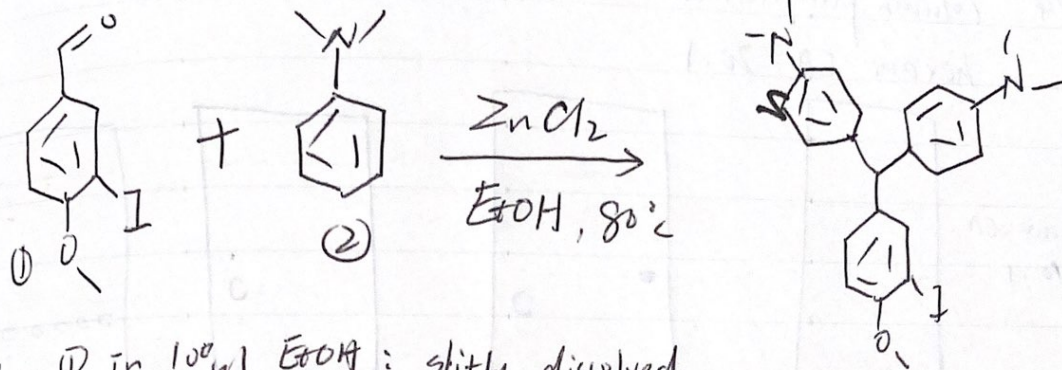 O
N
+
ZnCl2
EtOH, 80°C
I
O
①
②
N
N
I
O
① in 100 ml EtOH : slitly dissolved